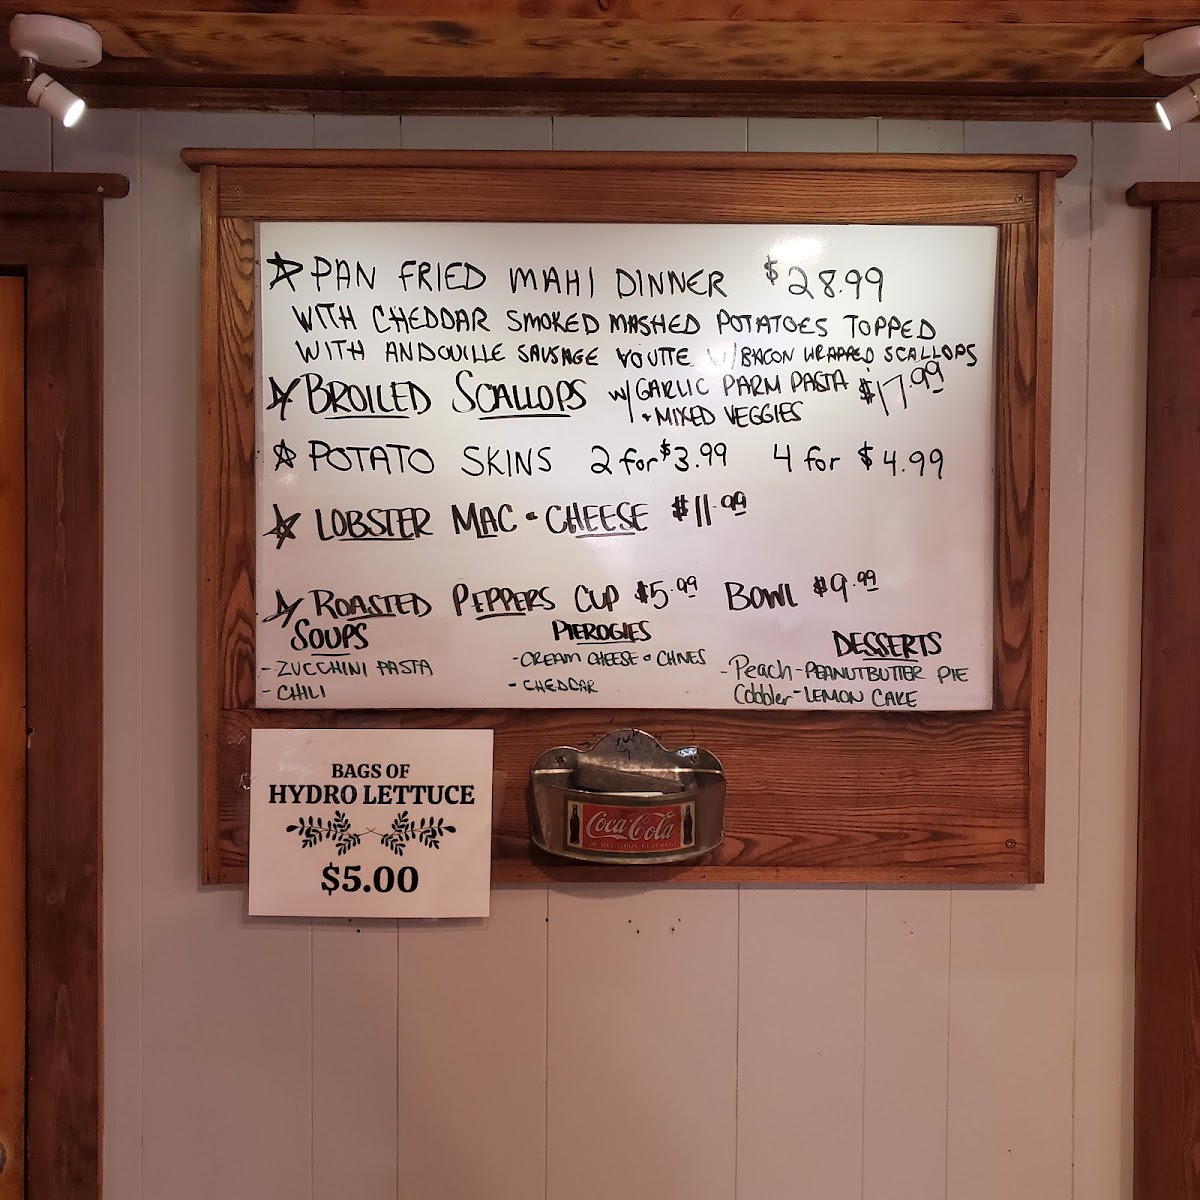 ☆ PAN FRIED MAHI DINNER $28.99
WITH CHEDDAR SMOKED MASHED POTATOES TOPPED
WITH ANDOUILLE SAUSAGE VOUTTE W/BACON WRAPPED SCALLOPS
☆ BROILED SCALLOPS W/ GARLIC PARM PASTA $17.99
+ MIXED VEGGIES
☆ POTATO SKINS 2 for $3.99 4 for $4.99
☆ LOBSTER MAC • CHEESE $11.99
☆ ROASTED PEPPERS CUP $5.99 BOWL $9.99
SOUPS
- ZUCCHINI PASTA
- CHILI
PIEROGIES
- CREAM CHEESE • CHIVES
- CHEDDAR
DESSERTS
- Peach Cobbler
- PEANUTBUTTER PIE
- LEMON CAKE
BAGS OF
HYDRO LETTUCE
$5.00
Coca-Cola